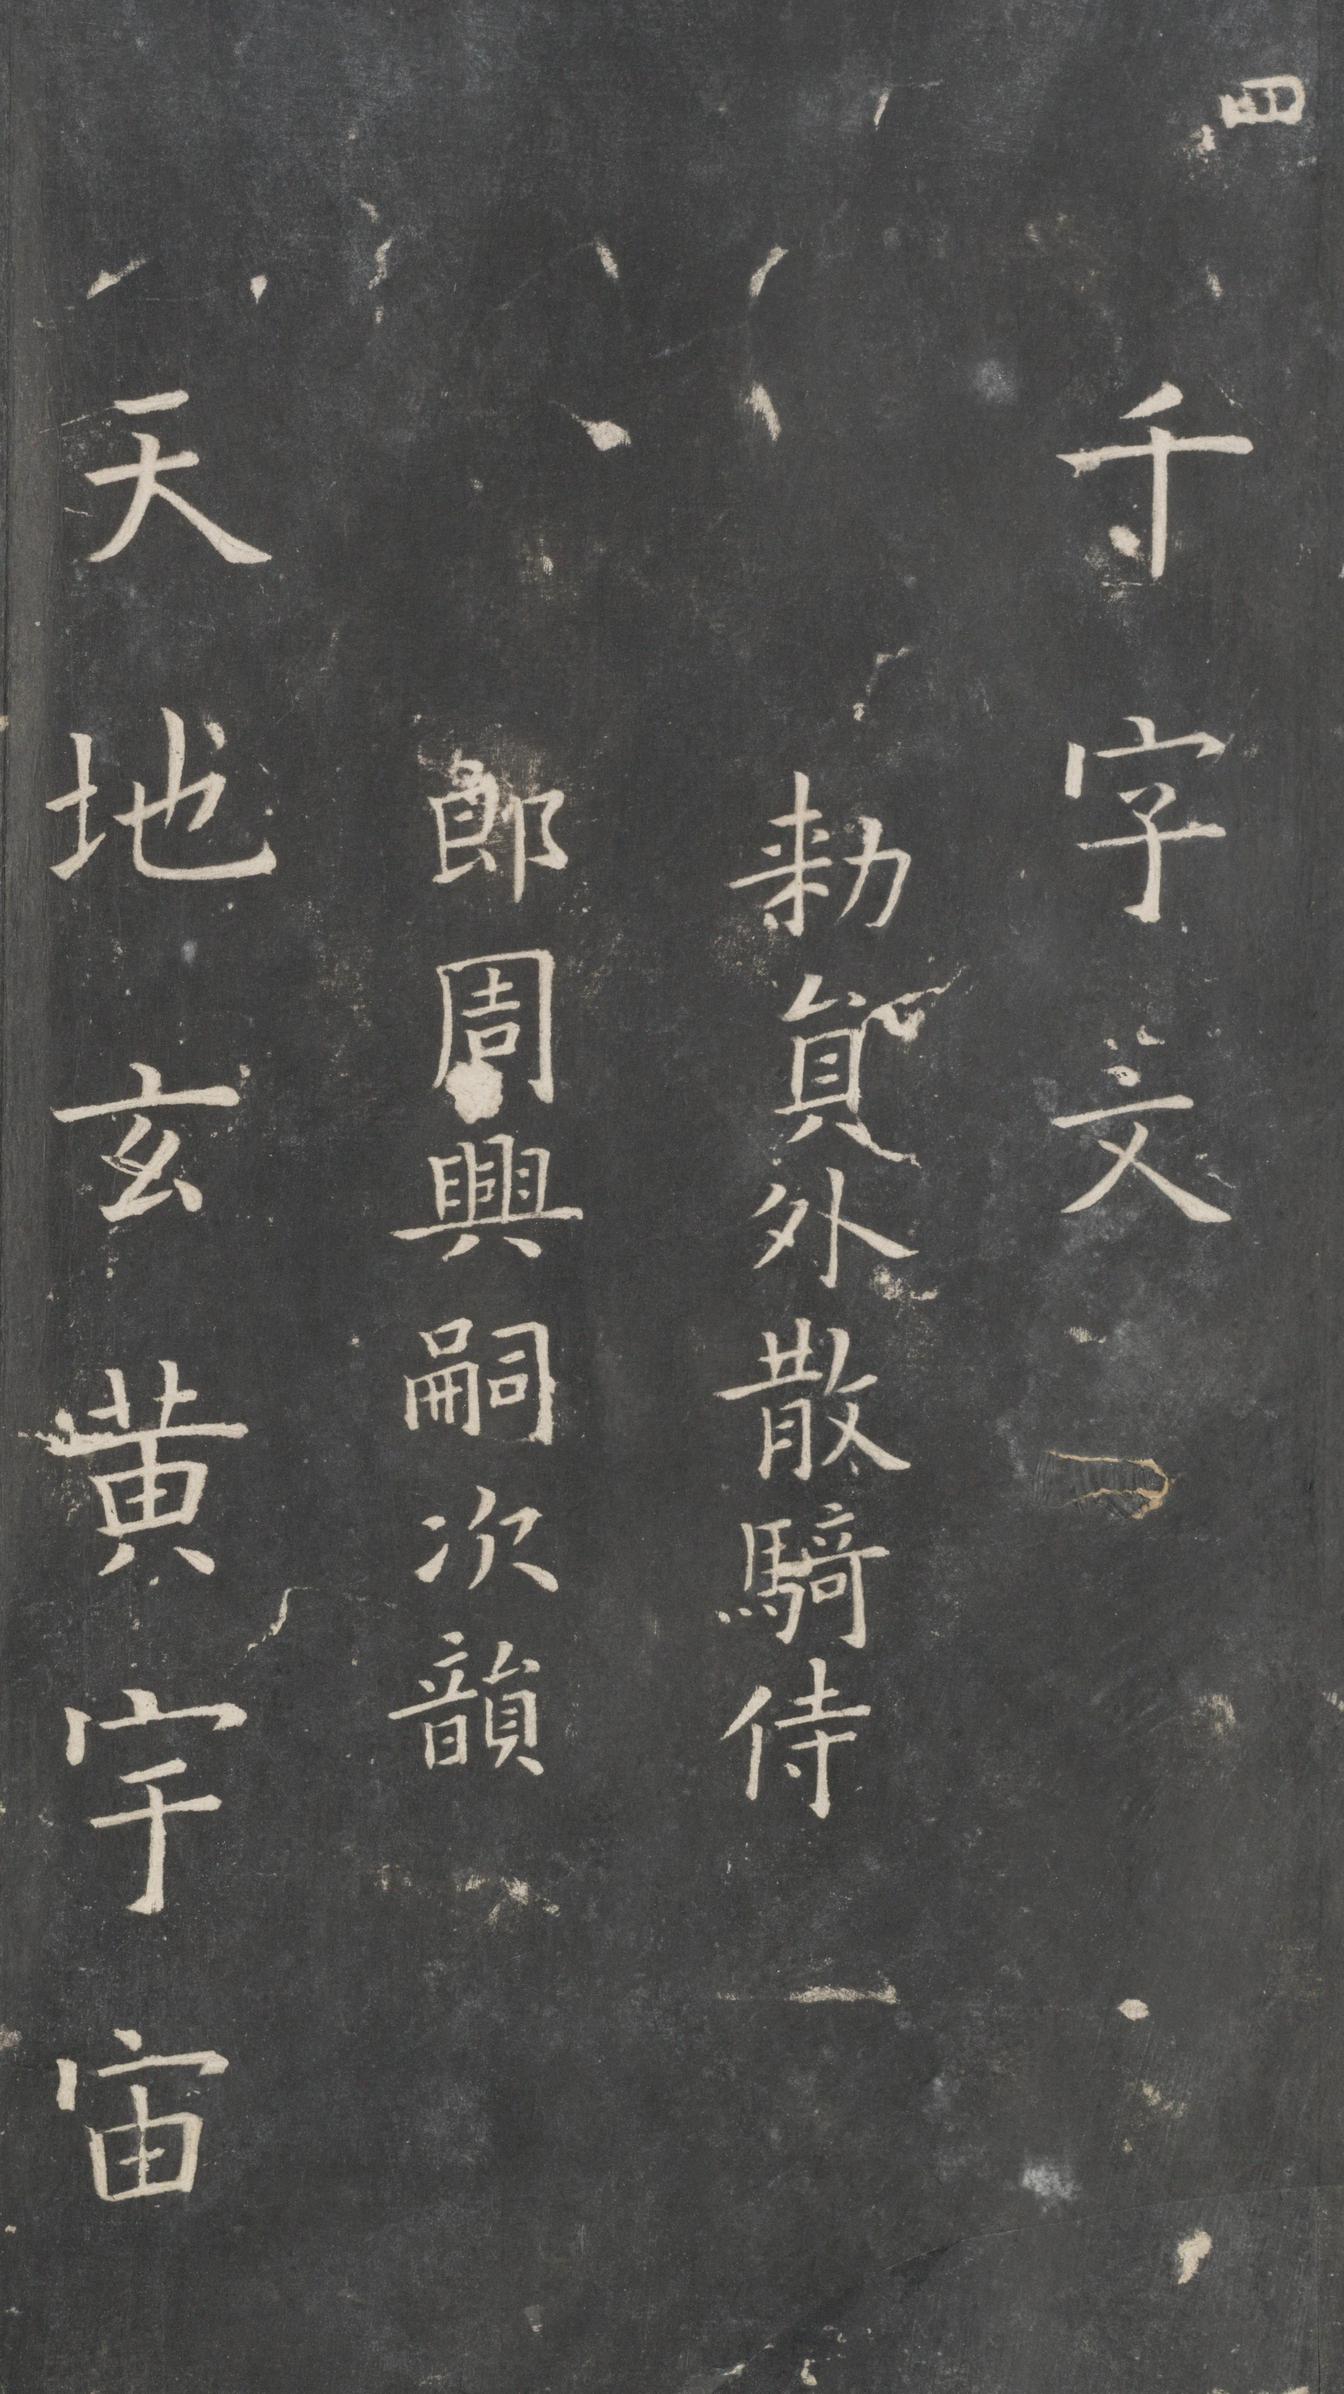 四
千字文
勑員外散騎侍
郎周興嗣次韻
天地玄黃宇宙